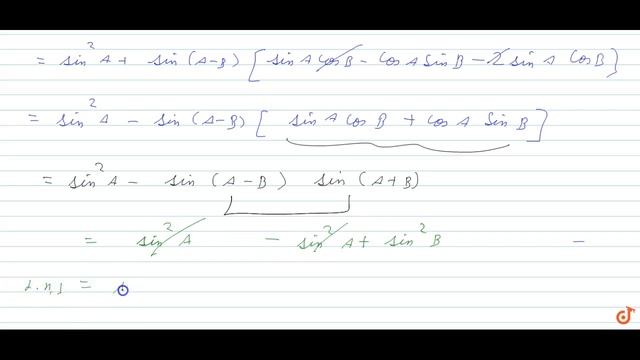 = sin² A + sin (A-B) [ sin A cos B - cos A sin B - 2 sin A cos B ]
= sin² A - sin (A-B) [ sin A cos B + cos A sin B ]
= sin² A - sin (A-B) sin (A+B)
= sin² A - sin² A + sin² B -
=